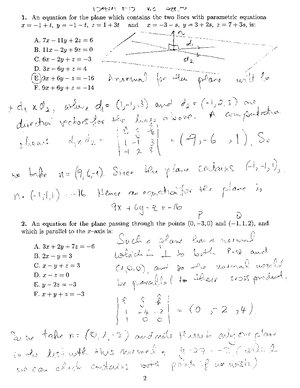 1. An equation for the plane which contains the two lines with parametric equations
x = −1 + t, y = −1 − t, z = 1 + 3t and x = −3 − s, y = 3 + 2s, z = 7 + 3s, is:
A. 7x − 11y + 2z = 6
B. 11x − 2y + 9z = 0
C. 6x − 2y + z = −3
D. 3x − 6y + z = 4
E. 9x + 6y − z = −16
F. 9x + 6y + z = −14
A normal for the plane will be
d₁ × d₂, where d₁ = (1,−1,3) and d₂ = (−1,2,3) are
direction vectors for the lines above. A computation
shows d₁ × d₂ = = (−9, −6, 1). So
we take n = (9, 6, −1). Since the plane contains (−1,−1,1),
n·(−1,−1,1) = −16. Hence an equation for the plane is
9x + 6y − z = −16
P Q
2. An equation for the plane passing through the points (0, −3, 0) and (−1, 1, 2), and
which is parallel to the x−axis is:
A. 3x + 2y + 7z = −6
B. 2x − y = 3
C. x − y + z = 3
D. x − z = 0
E. y − 2z = −3
F. x + y + z = −3
Such a plane has a normal
which is ⊥ to both PQ and
(1,0,0), and so the normal would
be parallel to their cross product.
= (0, −2, 4)
So we take n = (0, 1, −2) and note there is only one plane
in the list with this normal: y − 2z = −3 (which
we can check contains both points if we wish)
2